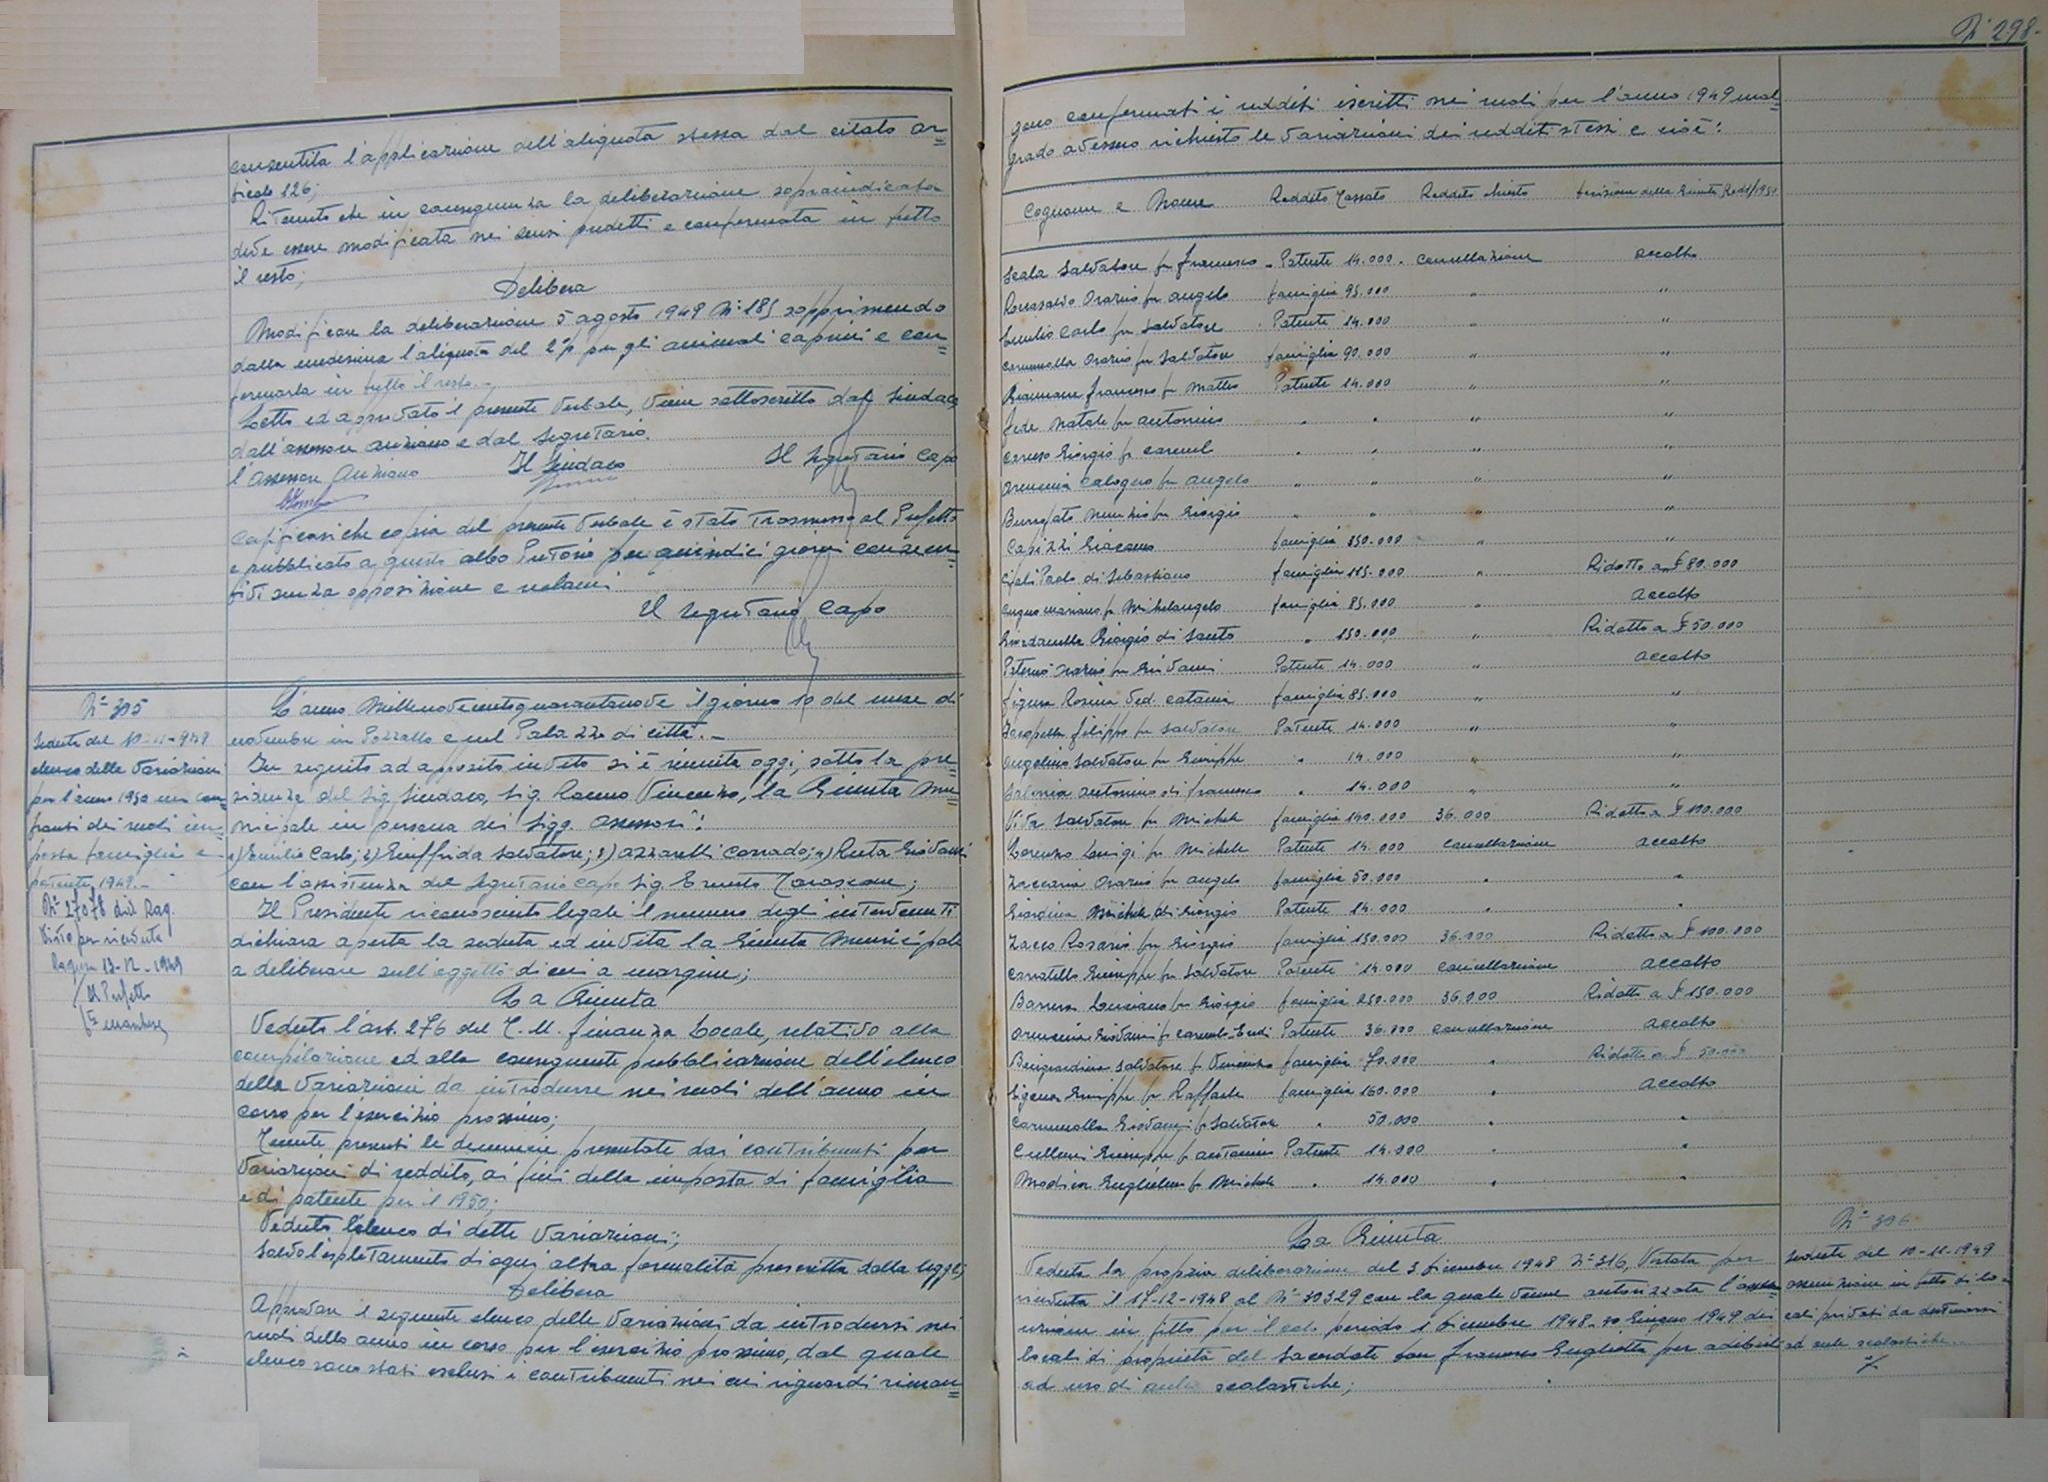 N° 298.
consentita l'applicazione dell'aliquota stessa dal citato ar=
ticolo 126;
Ritenuto che in conseguenza la deliberazione sopraindicata
deve essere modificata nei sensi predetti e confermata in tutto
il resto;
Delibera
Modificare la deliberazione 5 agosto 1949 N° 185 sopprimendo
dalla medesima l'aliquota del 2% per gli animali caprini e con=
fermarla in tutto il resto.-
Letto ed approvato il presente verbale, viene sottoscritto dal Sindaco,
dall'assessore anziano e dal Segretario.
l'Assessore Anziano Il Sindaco Il Segretario Capo
Certificasi che copia del presente verbale è stata trasmessa al Prefetto
e pubblicata a questo albo Pretorio per quindici giorni consecu=
tivi senza opposizione e reclami
Il Segretario Capo
N° 305
Seduta del 10-11-949
elenco delle variazioni
per l'anno 1950 nei con
fronti dei ruoli im=
posta famiglia e
patente 1949.-
N° 27078 div. Rag.
Visto per ricevuta
Ragusa 13-12-1949
Il Prefetto
L'anno Millenovecentoquarantanove il giorno 10 del mese di
novembre in Pozzallo e nel Palazzo di città.-
In seguito ad apposito invito si è riunita oggi, sotto la pre=
sidenza del Sig. Sindaco, Sig. Vincenzo, la Giunta Mu=
nicipale in persona dei Sigg. Assessori:
1) Emilio Carlo; 2) Giuffrida Salvatore; 3) Azzarelli Corrado; 4) Ruta Giovanni
con l'assistenza del Segretario capo Sig. Ernesto Tarascone;
Il Presidente riconosciuto legale il numero degli intervenuti
dichiara aperta la seduta ed invita la Giunta Municipale
a deliberare sull'oggetto di cui a margine;
La Giunta
Veduto l'art. 276 del T. U. finanza Locale, relativo alla
compilazione ed alla conseguente pubblicazione dell'elenco
delle variazioni da introdurre nei ruoli dell'anno in
corso per l'esercizio prossimo;
Tenute presenti le denuncie presentate dai contribuenti per
variazioni di reddito, ai fini della imposta di famiglia
e di patente per il 1950;
Veduto l'elenco di dette variazioni;
Salvo l'espletamento di ogni altra formalità prescritta dalla legge;
Delibera
Approvare il seguente elenco delle variazioni da introdursi nei
ruoli dello anno in corso per l'esercizio prossimo, dal quale
elenco sono stati esclusi i contribuenti nei cui riguardi riman=
gono confermati i redditi iscritti nei ruoli per l'anno 1949 mal=
grado avessero richiesto le variazioni dei redditi stessi e cioè:
Cognome e Nome Reddito Tassato Reddito chiesto Decisione della Giunta
Scala Salvatore fu Francesco - Patente 14.000 - cancellazione accolto
Orazio fu Angelo famiglia 95.000 " "
Emilio Carlo fu Salvatore Patente 14.000 " "
Carmenolla Orazio fu Salvatore famiglia 90.000 " "
Francesco fu Matteo Patente 14.000 " "
Fede Natale fu Antonino " " " "
Caruso Giorgio fu Carmel " " " "
Armenia Calogero fu Angelo " " " "
Burrafato Nunzio fu Giorgio " " " "
Capizzi Giacomo famiglia 350.000 " "
Paolo di Sebastiano famiglia 115.000 " Ridotto a £ 80.000
Mariano fu Michelangelo famiglia 85.000 " accolto
Giordanella Giorgio di Santo " 150.000 " Ridotto a £ 50.000
Paternò Orazio fu Giovanni Patente 14.000 " accolto
Figura Rosina Ved. Catania famiglia 85.000 " "
Filippo fu Salvatore Patente 14.000 " "
Angelino Salvatore fu Giuseppe " 14.000 " "
Salonia Antonino di Francesco " 14.000 " "
Vita Salvatore fu Michele famiglia 140.000 36.000 Ridotto a £ 100.000
Lorenzo Luigi fu Michele Patente 14.000 cancellazione accolto
Zaccaria Orazio fu Angelo famiglia 50.000 " "
Giardina Michele di Giorgio Patente 14.000 " "
Zacco Rosario fu Giorgio famiglia 150.000 36.000 Ridotto a £ 100.000
Giuseppe fu Salvatore Patente 14.000 cancellazione accolto
Luciano fu Giorgio famiglia 250.000 36.000 Ridotto a £ 150.000
Armenia Giovanni fu Carmelo Eredi Patente 36.000 cancellazione accolto
Salvatore fu Vincenzo famiglia 70.000 " Ridotto a £ 50.000
Giuseppe fu Raffaele famiglia 160.000 " accolto
Carmenolla Giovanni fu Salvatore " 50.000 " "
Giuseppe fu Antonino Patente 14.000 " "
Modica Guglielmo fu Michele " 14.000 " "
La Giunta
Veduta la propria deliberazione del 3 dicembre 1948 N° 316, vistata per
ricevuta il 17-12-1948 al N° 30329 con la quale venne autorizzata l'assun=
zione in fitto per il periodo 1 dicembre 1948 - 30 Giugno 1949 dei
locali di proprietà del Sacerdote Don Francesco Gugliotta per adibirli
ad uso di aule scolastiche;
N° 306
Seduta del 10-11-1949
assunzione in fitto di lo=
cali privati da destinarsi
ad aule scolastiche.